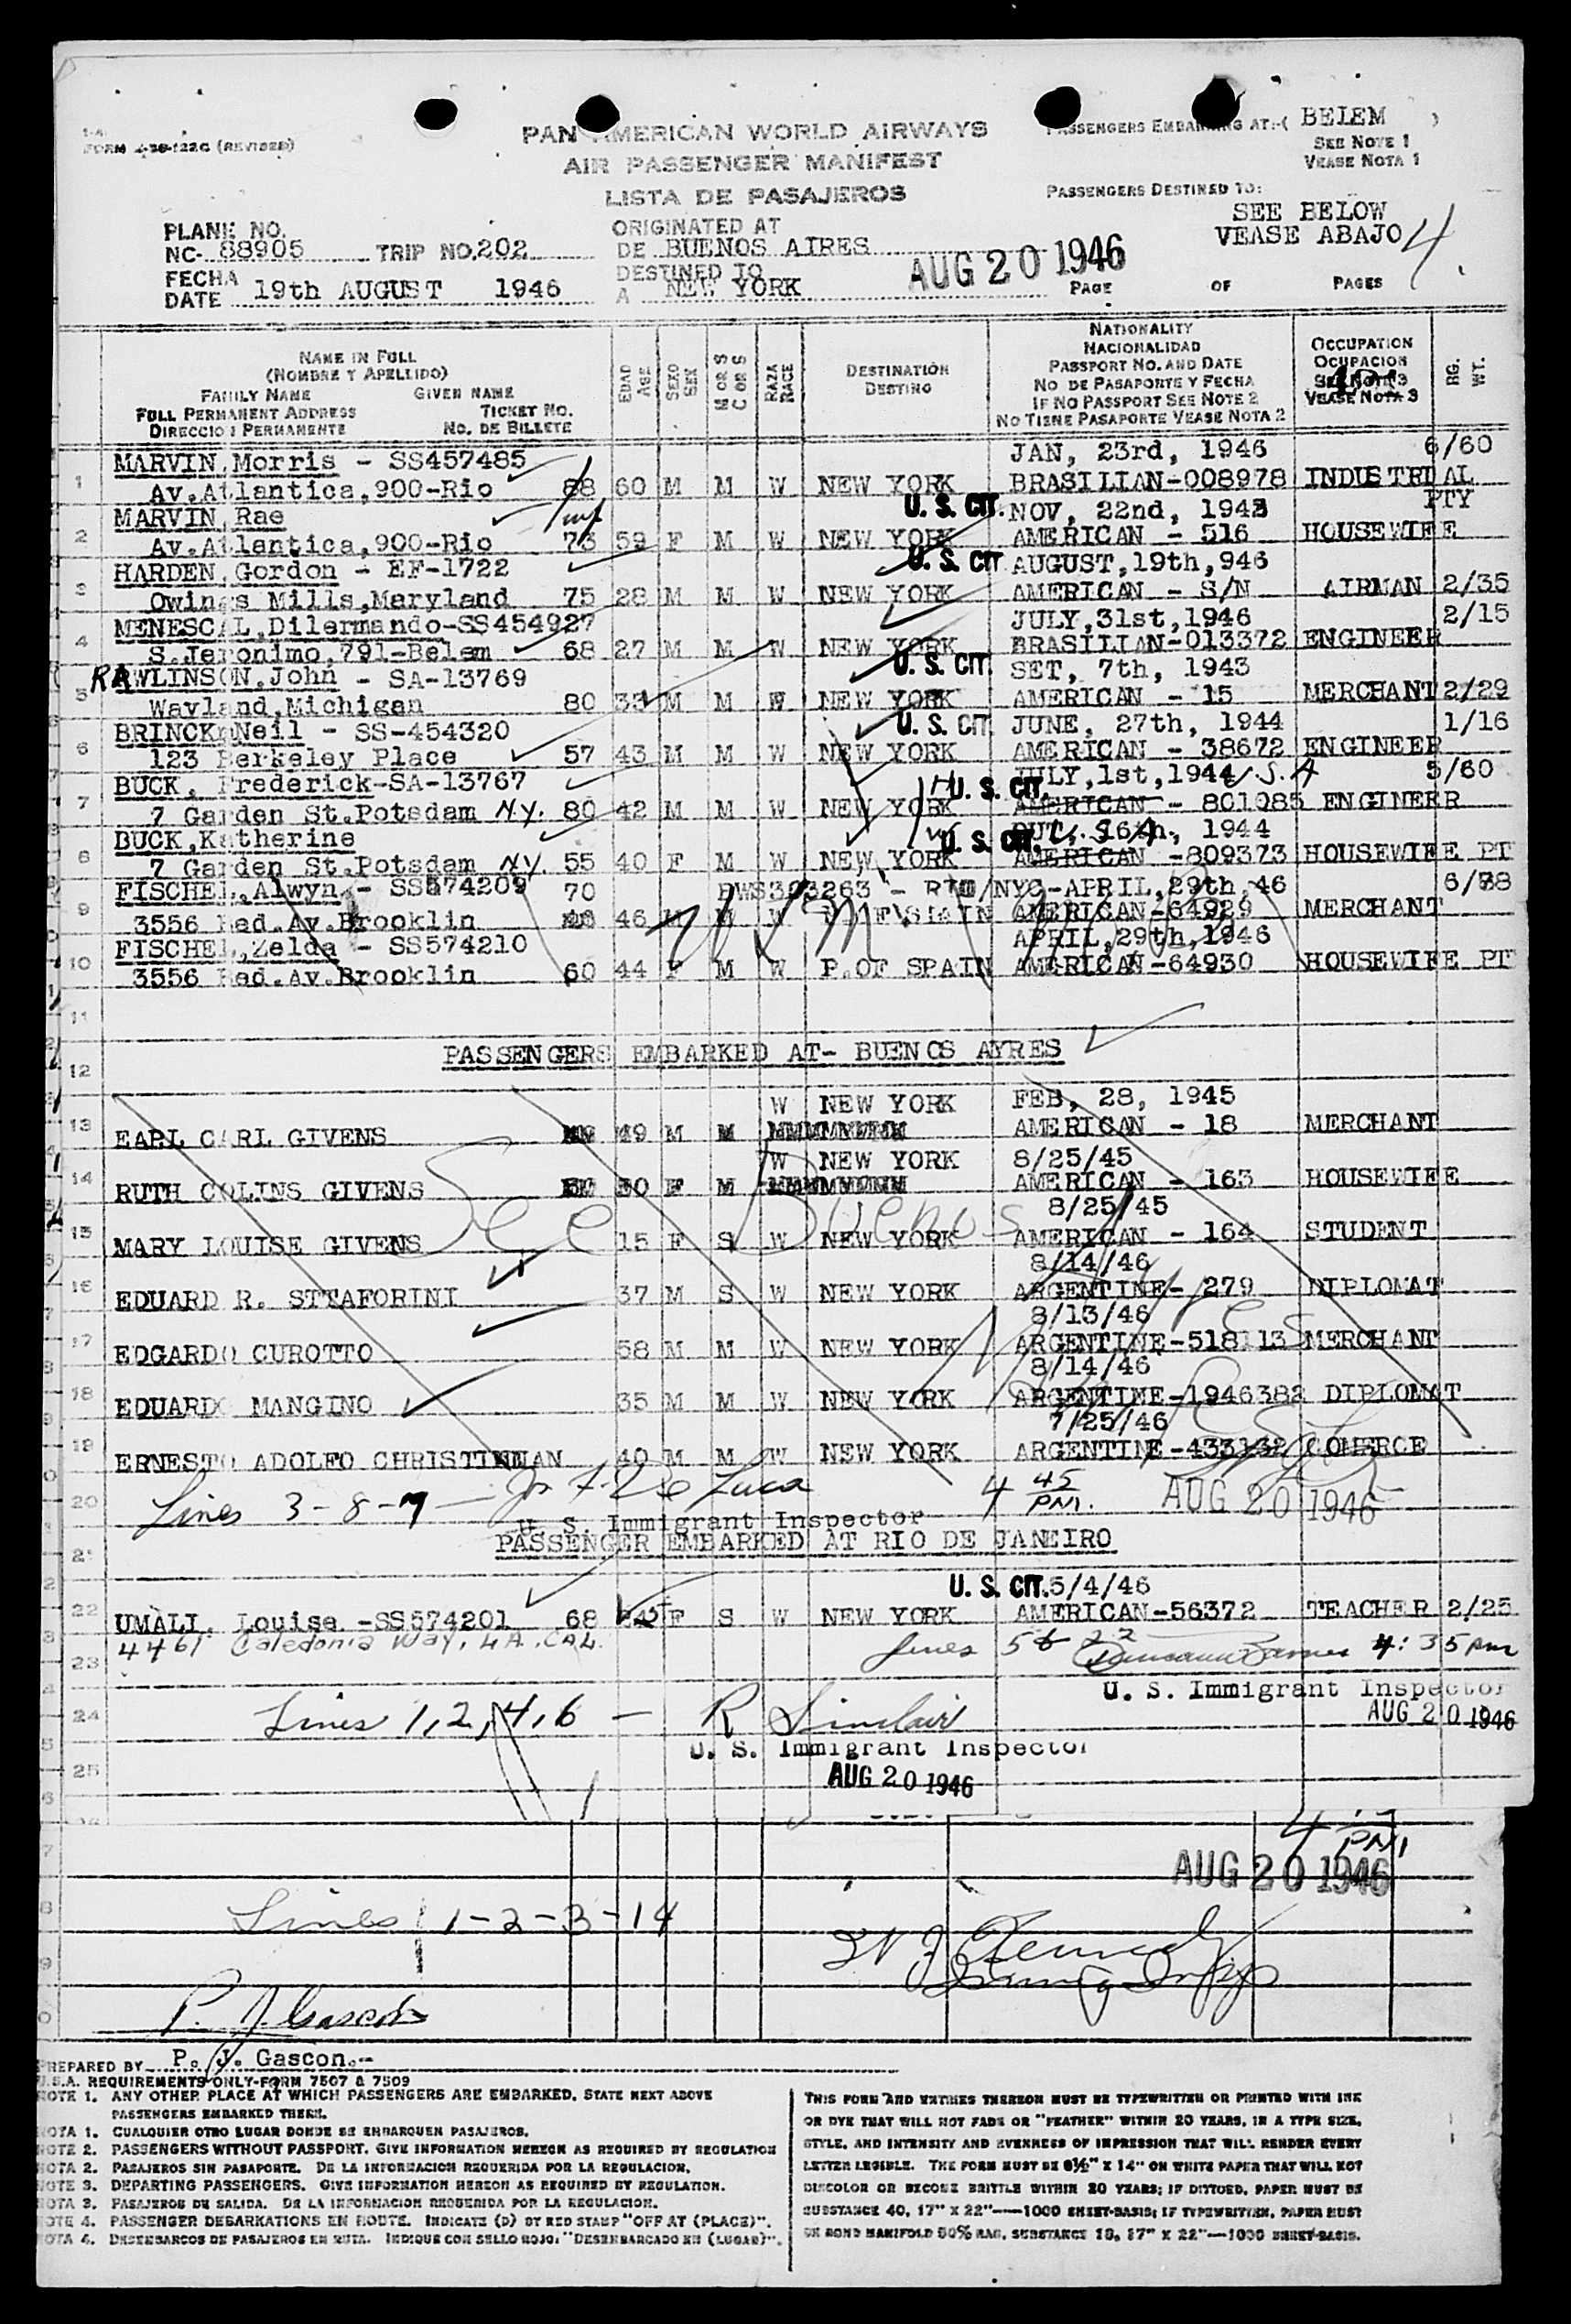 FORM 4-38-122G (REVISED)
PAN AMERICAN WORLD AIRWAYS
AIR PASSENGER MANIFEST
LISTA DE PASAJEROS
PASSENGERS EMBARKING AT:-( BELEM )
SEE NOTE 1
VEASE NOTA 1
PASSENGERS DESTINED TO:
SEE BELOW
VEASE ABAJO 4
PLANE NO.
NC- 88905 TRIP NO. 202
ORIGINATED AT
DE BUENOS AIRES
FECHA
DATE 19th AUGUST 1946
DESTINED TO
A NEW YORK
AUG 20 1946
PAGE OF PAGES
NAME IN FULL
(NOMBRE Y APELLIDO)
FAMILY NAME GIVEN NAME
FULL PERMANENT ADDRESS TICKET NO.
DIRECCION PERMANENTE NO. DE BILLETE
EDAD AGE
SEXO SEX
M OR S C OR S
RAZA RACE
DESTINATION
DESTINO
NATIONALITY
NACIONALIDAD
PASSPORT NO. AND DATE
NO DE PASAPORTE Y FECHA
IF NO PASSPORT SEE NOTE 2
NO TIENE PASAPORTE VEASE NOTA 2
OCCUPATION
OCUPACION
SEE NOTE 3
VEASE NOTA 3
BG. WT.
MARVIN, Morris - SS457485 JAN, 23rd, 1946 6/60
1 Av. Atlantica, 900-Rio 68 60 M M W NEW YORK BRASILIAN-008978 INDUSTRIAL
MARVIN, Rae U. S. CIT. NOV, 22nd, 1943 PTY
2 Av. Atlantica, 900-Rio 73 59 F M W NEW YORK AMERICAN - 516 HOUSEWIFE
HARDEN, Gordon - EF-1722 U. S. CIT AUGUST, 19th, 946
3 Owings Mills, Maryland 75 28 M M W NEW YORK AMERICAN - S/N AIRMAN 2/35
MENESCAL, Dilermando-SS454927 JULY, 31st, 1946 2/15
4 S. Jeronimo, 791-Belem 68 27 M M W NEW YORK BRASILIAN-013372 ENGINEER
RAWLINSON, John - SA-13769 U. S. CIT. SET, 7th, 1943
5 Wayland, Michigan 80 33 M M W NEW YORK AMERICAN - 15 MERCHANT 2/29
BRINCK, Neil - SS-454320 U. S. CIT. JUNE, 27th, 1944 1/16
6 123 Berkeley Place 57 43 M M W NEW YORK AMERICAN - 38672 ENGINEER
BUCK, Frederick-SA-13767 U. S. CIT. JULY, 1st, 1944 U.S.A 5/60
7 7 Garden St. Potsdam N.Y. 80 42 M M W NEW YORK AMERICAN - 801085 ENGINEER
BUCK, Katherine U. S. CIT. U.S.A. 16th, 1944
8 7 Garden St. Potsdam N.Y. 55 40 F M W NEW YORK AMERICAN -809373 HOUSEWIFE PT
FISCHEL, Alwyn - SS574209 70 PWS303263 - RIO/NYC-APRIL, 29th, 46
9 3556 Bed. Av. Brooklin 46 M M W P. OF SPAIN AMERICAN-64929 MERCHANT
FISCHEL, Zelda - SS574210 APRIL, 29th, 1946
10 3556 Bed. Av. Brooklin 60 44 F M W P. OF SPAIN AMERICAN-64930 HOUSEWIFE PT
11
PASSENGERS EMBARKED AT- BUENOS AYRES
12
W NEW YORK FEB, 28, 1945
13 EARL CARL GIVENS 49 M M AMERICAN - 18 MERCHANT
W NEW YORK 8/25/45
14 RUTH COLINS GIVENS F M AMERICAN - 163 HOUSEWIFE
See Buenos Ayres
8/25/45
15 MARY LOUISE GIVENS 15 F S W NEW YORK AMERICAN - 164 STUDENT
8/14/46
16 EDUARD R. STTAFORINI 37 M S W NEW YORK ARGENTINE- 279 DIPLOMAT
8/13/46
17 EDGARDO CUROTTO 58 M M W NEW YORK ARGENTINE-518113 MERCHANT
8/14/46
18 EDUARDO MANGINO 35 M M W NEW YORK ARGENTINE-1946382 DIPLOMAT
7/25/46
19 ERNESTO ADOLFO 40 M M W NEW YORK ARGENTINE-433132 COMERCE
20 Lines 3-8-7 — Jos F. De Luca 4 45 PM. AUG 20 1946
U. S. Immigrant Inspector
PASSENGER EMBARKED AT RIO DE JANEIRO
21
U. S. CIT. 5/4/46
22 UMALI, Louise -SS574201 68 F S W NEW YORK AMERICAN-56372 TEACHER 2/25
4461 Caledonia Way, LA. CAL.
23 Lines 5 22 4:35 PM
U. S. Immigrant Inspector
AUG 20 1946
24 Lines 1, 2, 4, 6 — R Sinclair
U. S. Immigrant Inspector
25 AUG 20 1946
4 PM
AUG 20 1946
Lines 1-2-3-14
Kennedy
P. J. Gascon
PREPARED BY P. J. Gascon.-
U.S.A. REQUIREMENTS ONLY-FORM 7507 & 7509
NOTE 1. ANY OTHER PLACE AT WHICH PASSENGERS ARE EMBARKED, STATE NEXT ABOVE
PASSENGERS EMBARKED THERE.
NOTA 1. CUALQUIER OTRO LUGAR DONDE SE EMBARQUEN PASAJEROS.
NOTE 2. PASSENGERS WITHOUT PASSPORT. GIVE INFORMATION HEREON AS REQUIRED BY REGULATION
NOTA 2. PASAJEROS SIN PASAPORTE. DE LA INFORMACION REQUERIDA POR LA REGULACION.
NOTE 3. DEPARTING PASSENGERS. GIVE INFORMATION HEREON AS REQUIRED BY REGULATION.
NOTA 3. PASAJEROS DE SALIDA. DE LA INFORMACION REQUERIDA POR LA REGULACION.
NOTE 4. PASSENGER DEBARKATIONS EN ROUTE. INDICATE (D) BY RED STAMP "OFF AT (PLACE)".
NOTA 4. DESEMBARCOS DE PASAJEROS EN RUTA. INDIQUE CON SELLO ROJO: "DESEMBARCADO EN (LUGAR)".
THIS FORM AND ENTRIES THEREON MUST BE TYPEWRITTEN OR PRINTED WITH INK
OR DYE THAT WILL NOT FADE OR "FEATHER" WITHIN 20 YEARS, IN A TYPE SIZE,
STYLE, AND INTENSITY AND EVENNESS OF IMPRESSION THAT WILL RENDER EVERY
LETTER LEGIBLE. THE FORM MUST BE 8½" X 14" ON WHITE PAPER THAT WILL NOT
DISCOLOR OR BECOME BRITTLE WITHIN 20 YEARS; IF DITTOED, PAPER MUST BE
SUBSTANCE 40, 17" X 22"—1000 SHEET-BASIS; IF TYPEWRITTEN, PAPER MUST
BE BOND MANIFOLD 50% RAG, SUBSTANCE 16, 17" X 22"—1000 SHEET-BASIS.